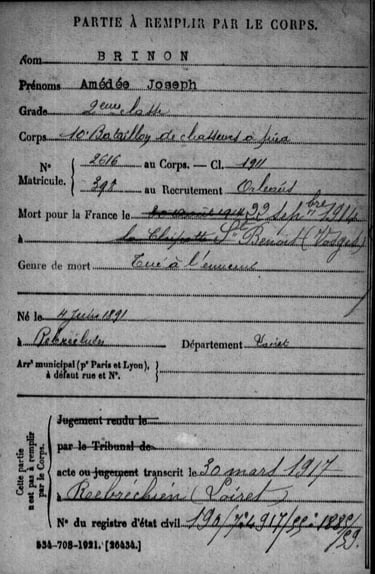 PARTIE À REMPLIR PAR LE CORPS.
Nom BRINON
Prénoms Amédée Joseph
Grade 2eme classe
Corps 10e Bataillon de chasseurs à pied
N° Matricule. { 2616 au Corps. — Cl. 1911
398 au Recrutement Orléans
Mort pour la France le 22 septbre 1914
à la Chipotte St Benoit (Vosges)
Genre de mort Tué à l'ennemi
Né le 4 Juin 1891
à Rebréchien Département Loiret
Arrt municipal (pr Paris et Lyon), à défaut rue et N°.
Cette partie n'est pas à remplir par le Corps.
Jugement rendu le
par le Tribunal de
acte ou jugement transcrit le 30 mars 1917
à Rebréchien (Loiret)
N° du registre d'état civil
534-708-1921. [26434.]